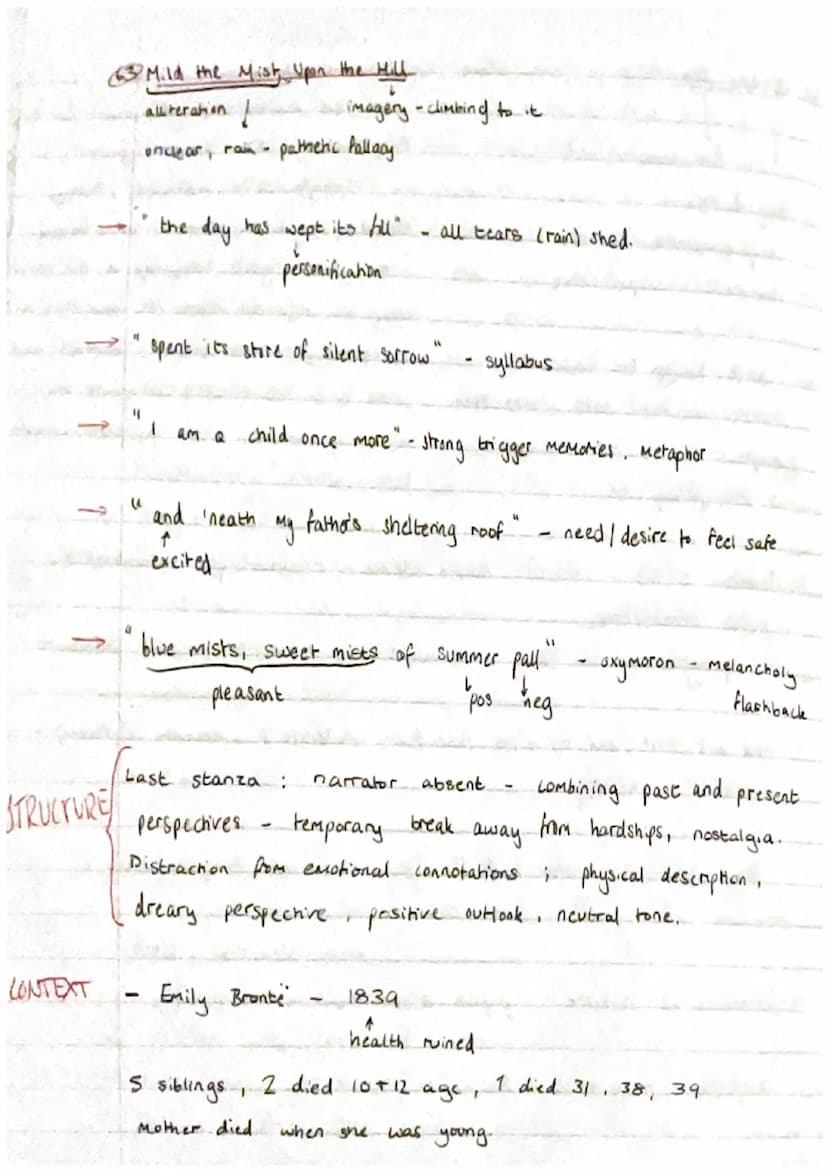 63 Mild the Mist Upon the Hill
alliteration imagery - climbing to it
unclear, rain - pathetic fallacy
→ "the day has wept its fill" - all tears (rain) shed.
personification
→ "spent its store of silent sorrow" - syllabus
→ "I am a child once more" - strong trigger memories, metaphor
→ "and 'neath my father's sheltering roof" - need/desire to feel safe
excited
→ "blue mists, sweet mists of summer pall" - oxymoron - melancholy
pleasant pos neg flashback
STRUCTURE
Last stanza : narrator absent - combining past and present
perspectives - temporary break away from hardships, nostalgia.
Distraction from emotional connotations ; physical description,
dreary perspective, positive outlook, neutral tone.
CONTEXT - Emily Brontë - 1839
health ruined
5 siblings, 2 died 10+12 age, 1 died 31, 38, 39
Mother died when she was young